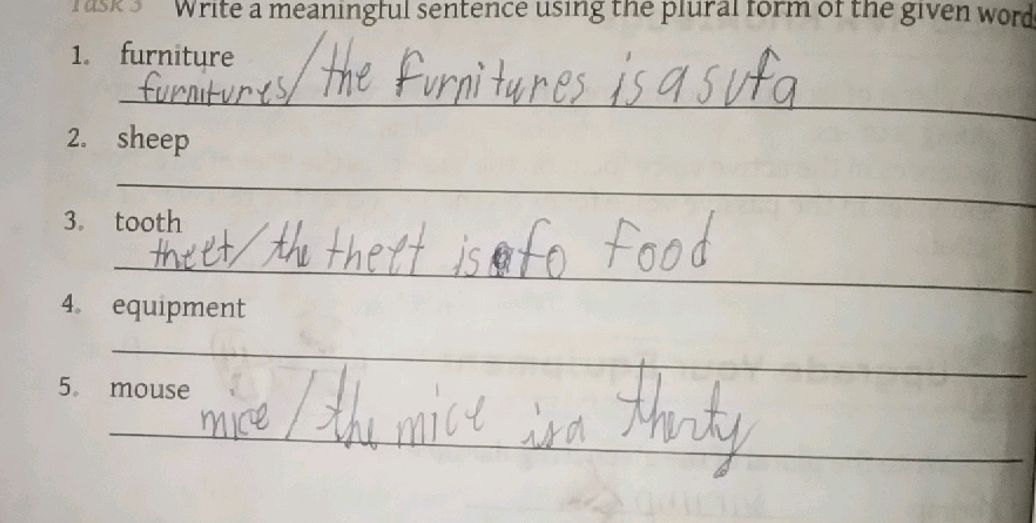 Task 3 Write a meaningful sentence using the plural form of the given word
1. furniture
furnitures/the furnitures is a sufa
2. sheep
3. tooth
theet/the theet is fo Food
4. equipment
5. mouse
mice/the mice is a therty